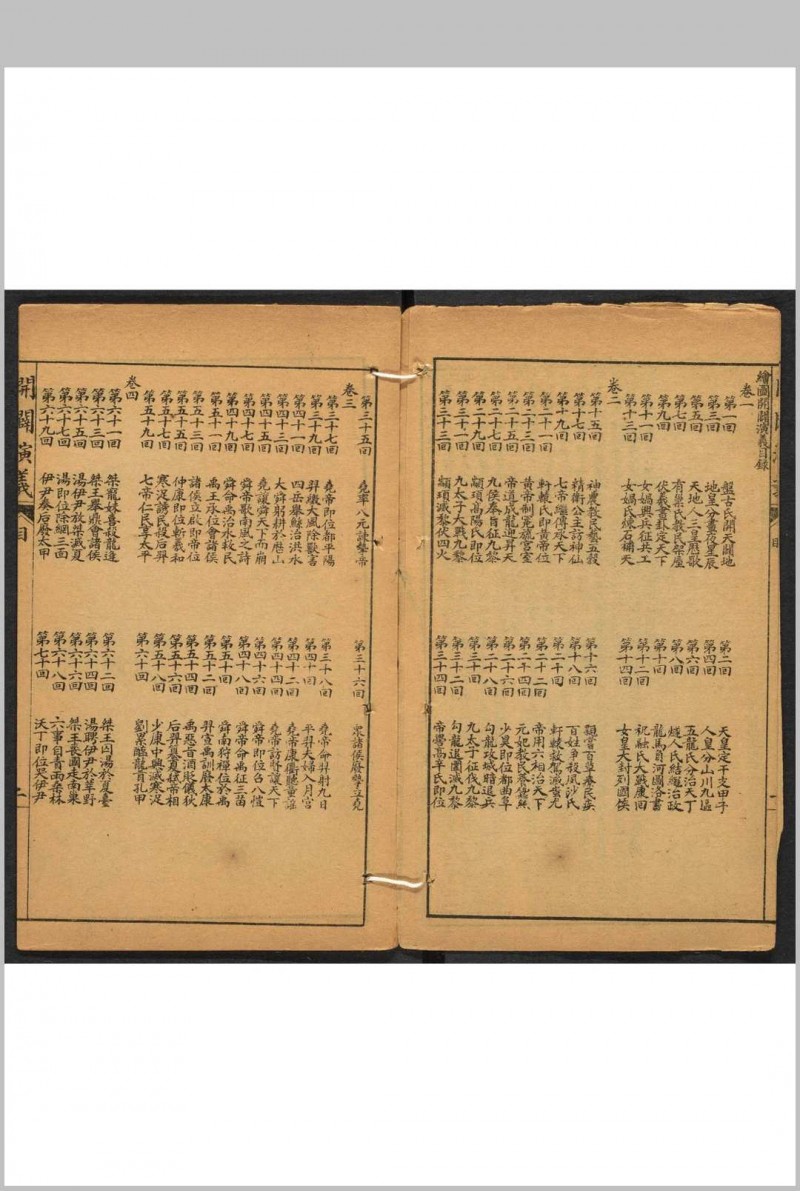 繪圖開闢演義目錄
卷一
第一回 盤古氏開天闢地 第二回 天皇定干支甲子
第三回 地皇分晝夜星辰 第四回 人皇分山川九區
第五回 天地人三皇歷歌 第六回 五龍氏分治天丁
第七回 有巢氏教民架屋 第八回 燧人氏結繩治政
第九回 伏羲畫卦定天下 第十回 龍馬負河圖洛書
第十一回 女媧興兵征共工 第十二回 祝融氏大戰康回
第十三回 女媧氏煉石補天 第十四回 女皇大封列國侯
卷二
第十五回 神農教民藝五穀 第十六回 親嘗百草療民疾
第十七回 精衛公主訪神仙 第十八回 百姓爭殺夙沙氏
第十九回 七帝繼傳承天下 第二十回 軒轅救駕滅蚩尤
第二十一回 軒轅氏即黃帝位 第二十二回 帝用六相治天下
第二十三回 黃帝制冕旒宮室 第二十四回 元妃教民養蠶絲
第二十五回 帝道成龍迎昇天 第二十六回 少昊即位都曲阜
第二十七回 九侯奉旨征九黎 第二十八回 勾龍攻城暗道兵
第二十九回 顓頊高陽氏即位 第三十回 九太子征伐九黎
第三十一回 九太子大戰九黎 第三十二回 勾龍道圍滅九黎
第三十三回 顓頊滅黎伏四火 第三十四回 帝嚳高辛氏即位
第三十五回 堯率八元諫摯帝 第三十六回 眾諸侯廢摯立堯
卷三
第三十七回 堯帝即位都平陽 第三十八回 堯帝命羿射九日
第三十九回 羿繳大風除獸害 第四十回 平羿夫婦入月宮
第四十一回 四岳舉鯀治洪水 第四十二回 堯帝康衢聽童謠
第四十三回 大舜躬耕於歷山 第四十四回 堯帝訪賢讓天下
第四十五回 堯讓舜天下而崩 第四十六回 舜帝即位召八愷
第四十七回 舜帝歌南風之詩 第四十八回 舜帝命禹征三苗
第四十九回 舜命禹治水救民 第五十回 舜南狩禪位於禹
第五十一回 禹王承位會諸侯 第五十二回 羿宣禹訓廢太康
第五十三回 諸侯立啟即帝位 第五十四回 禹惡旨酒貶儀狄
第五十五回 仲康即位斬羲和 第五十六回 后羿篡夏弒帝相
第五十七回 寒浞謗民殺后羿 第五十八回 少康中興滅寒浞
第五十九回 七帝仁民享太平 第六十回 劉累醢龍育孔甲
卷四
第六十一回 桀寵妹喜殺龍逄 第六十二回 桀王囚湯於夏臺
第六十三回 桀王舉鼎會諸侯 第六十四回 湯聘伊尹於莘野
第六十五回 湯伊尹放桀滅夏 第六十六回 桀王喪國走南巢
第六十七回 湯即位除網三面 第六十八回 六事自責雨桑林
第六十九回 伊尹奏后廢太甲 第七十回 沃丁即位哭伊尹
開闢演義 目 二